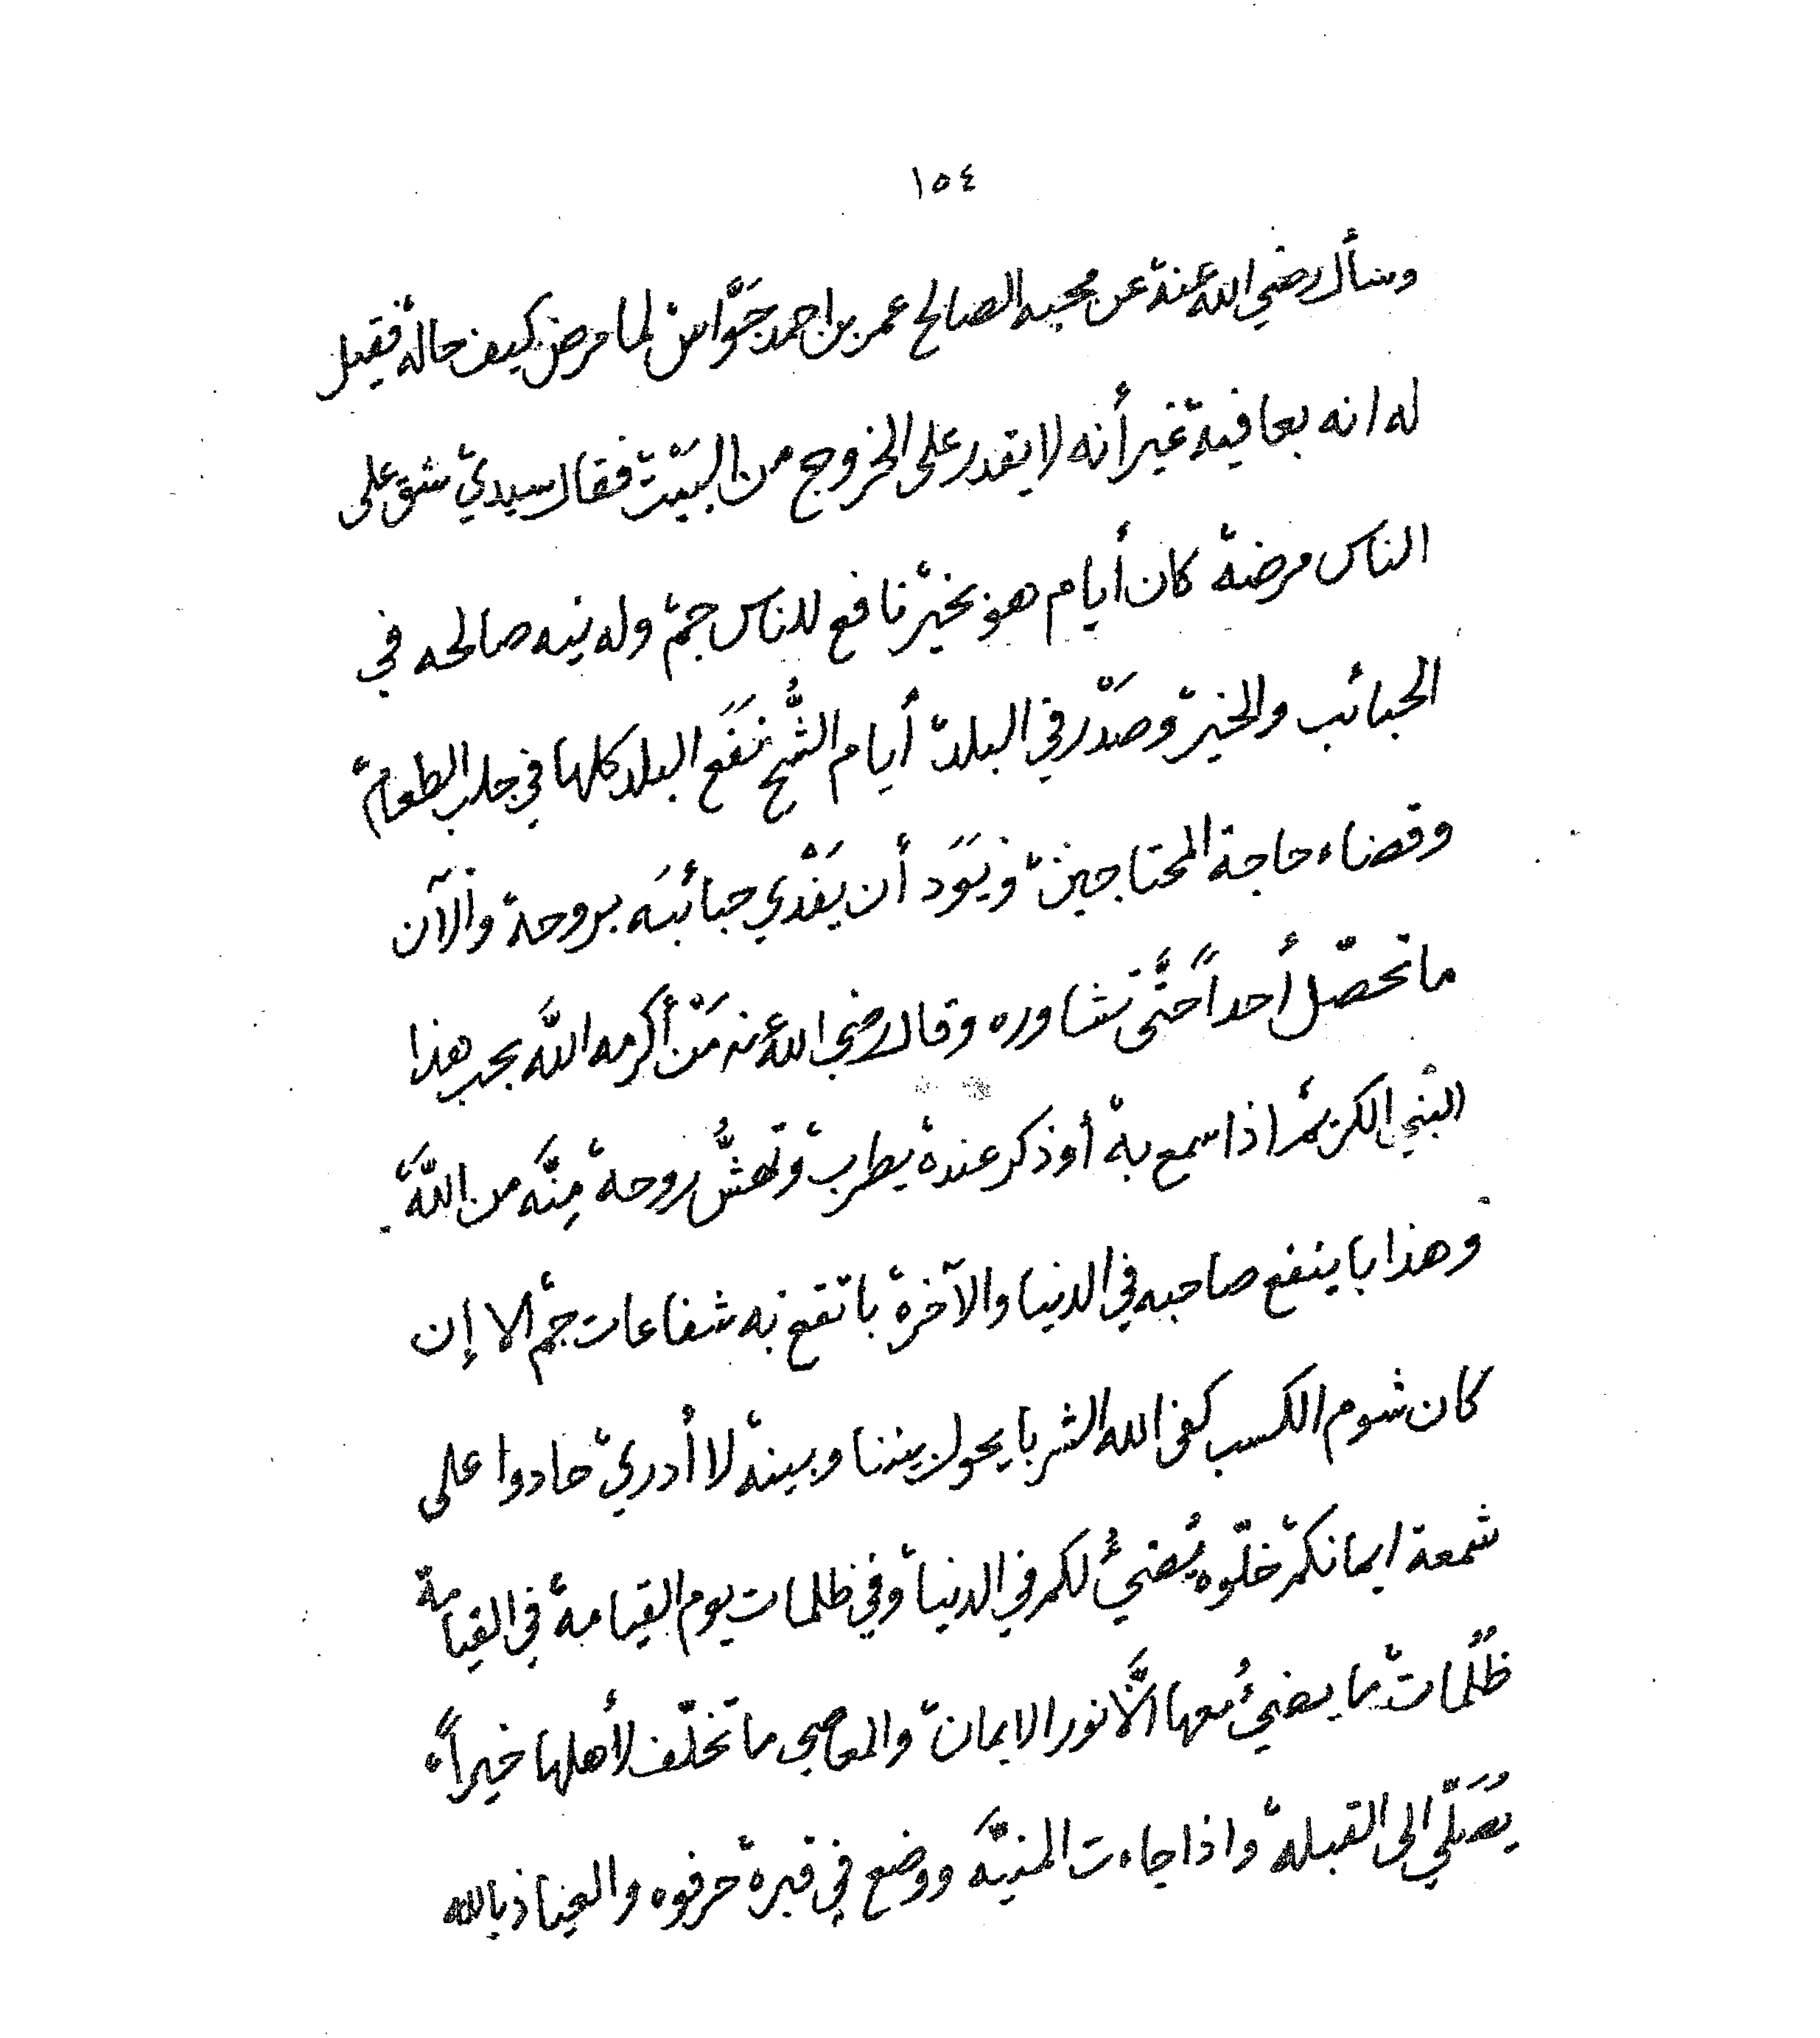 ١٥٤
وسأل رضي الله عنه عن محبه الصالح عمر بن احمد جَوَّاس لما مرض كيف حاله فقيل
له انه بعافية غير أنه لا يقدر على الخروج من البيت فقال سيدي شق على
الناس مرضه كان أيام هو بخير نافع للناس جمّ وله نيه صالحه في
الحبائب والخير وصَدْر في البلد أيام الشُّح نَفَع البلد كلها في جلب الطعام
وقضاء حاجة المحتاجين ويَوَد أن يَفْدي حبائبَه بروحه والآن
ما تحصّل أحداً حتَّى تشاوره وقال رضي الله عنه مَنْ أكرمه اللَّه بحب هذا
النبي الكريم اذا سمع به أو ذكر عنده يطرب وتهشُّ روحه مِنَّه من اللَّه
وهذا با ينفع صاحبه في الدنيا والآخرة با تقع به شفاعات جم الا إن
كان شوم الكسب كفى الله الشر با يحول بيننا وبينه لا أدري حادوا على
شمعة ايمانكم خلّوه يُضيُ لكم في الدنيا وفي ظلمات يوم القيامة في القيامة
ظُلُمات ما يضيُ معها الَّا نور الايمان والمعاصي ما تخلّف لأهلها خيراً
يُصَلّي الى القبلة واذا جاءت المنيَّه ووضع في قبره حرفوه والعياذ بالله